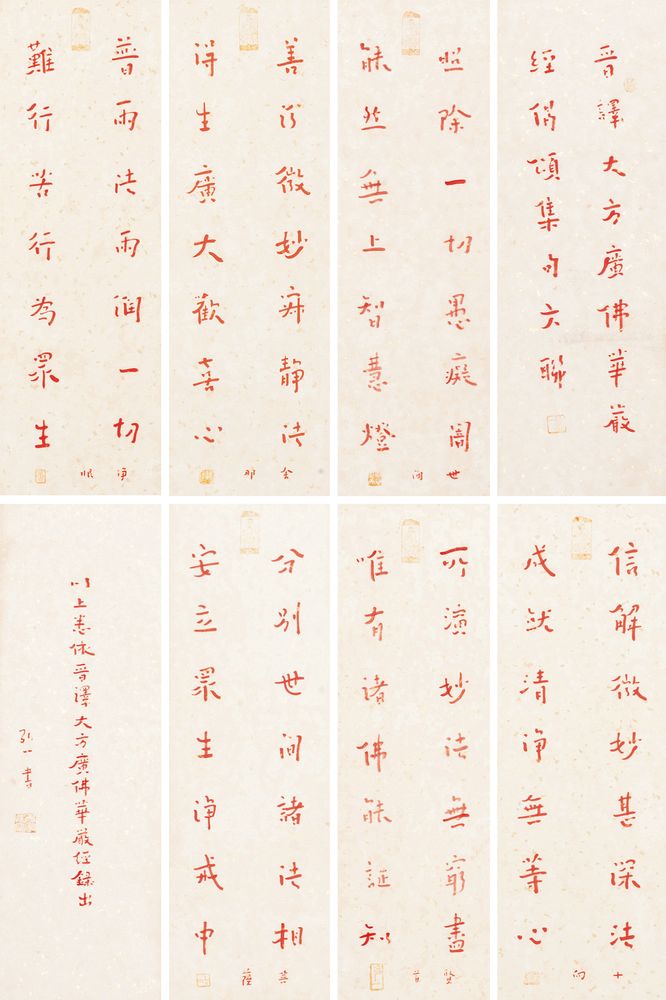 晉譯大方廣佛華嚴
經偈頌集句六聯
照除一切愚癡闇
能然無上智慧燈
世間
善行微妙寂靜法
得生廣大歡喜心
舍那
普雨法雨潤一切
難行苦行為眾生
淨眼
信解微妙甚深法
成就清淨無等心
十向
所演妙法無窮盡
唯有諸佛能証知
賢首
分別世間諸法相
安立眾生淨戒中
菩薩
以上悉依晉譯大方廣佛華嚴經錄出
弘一書